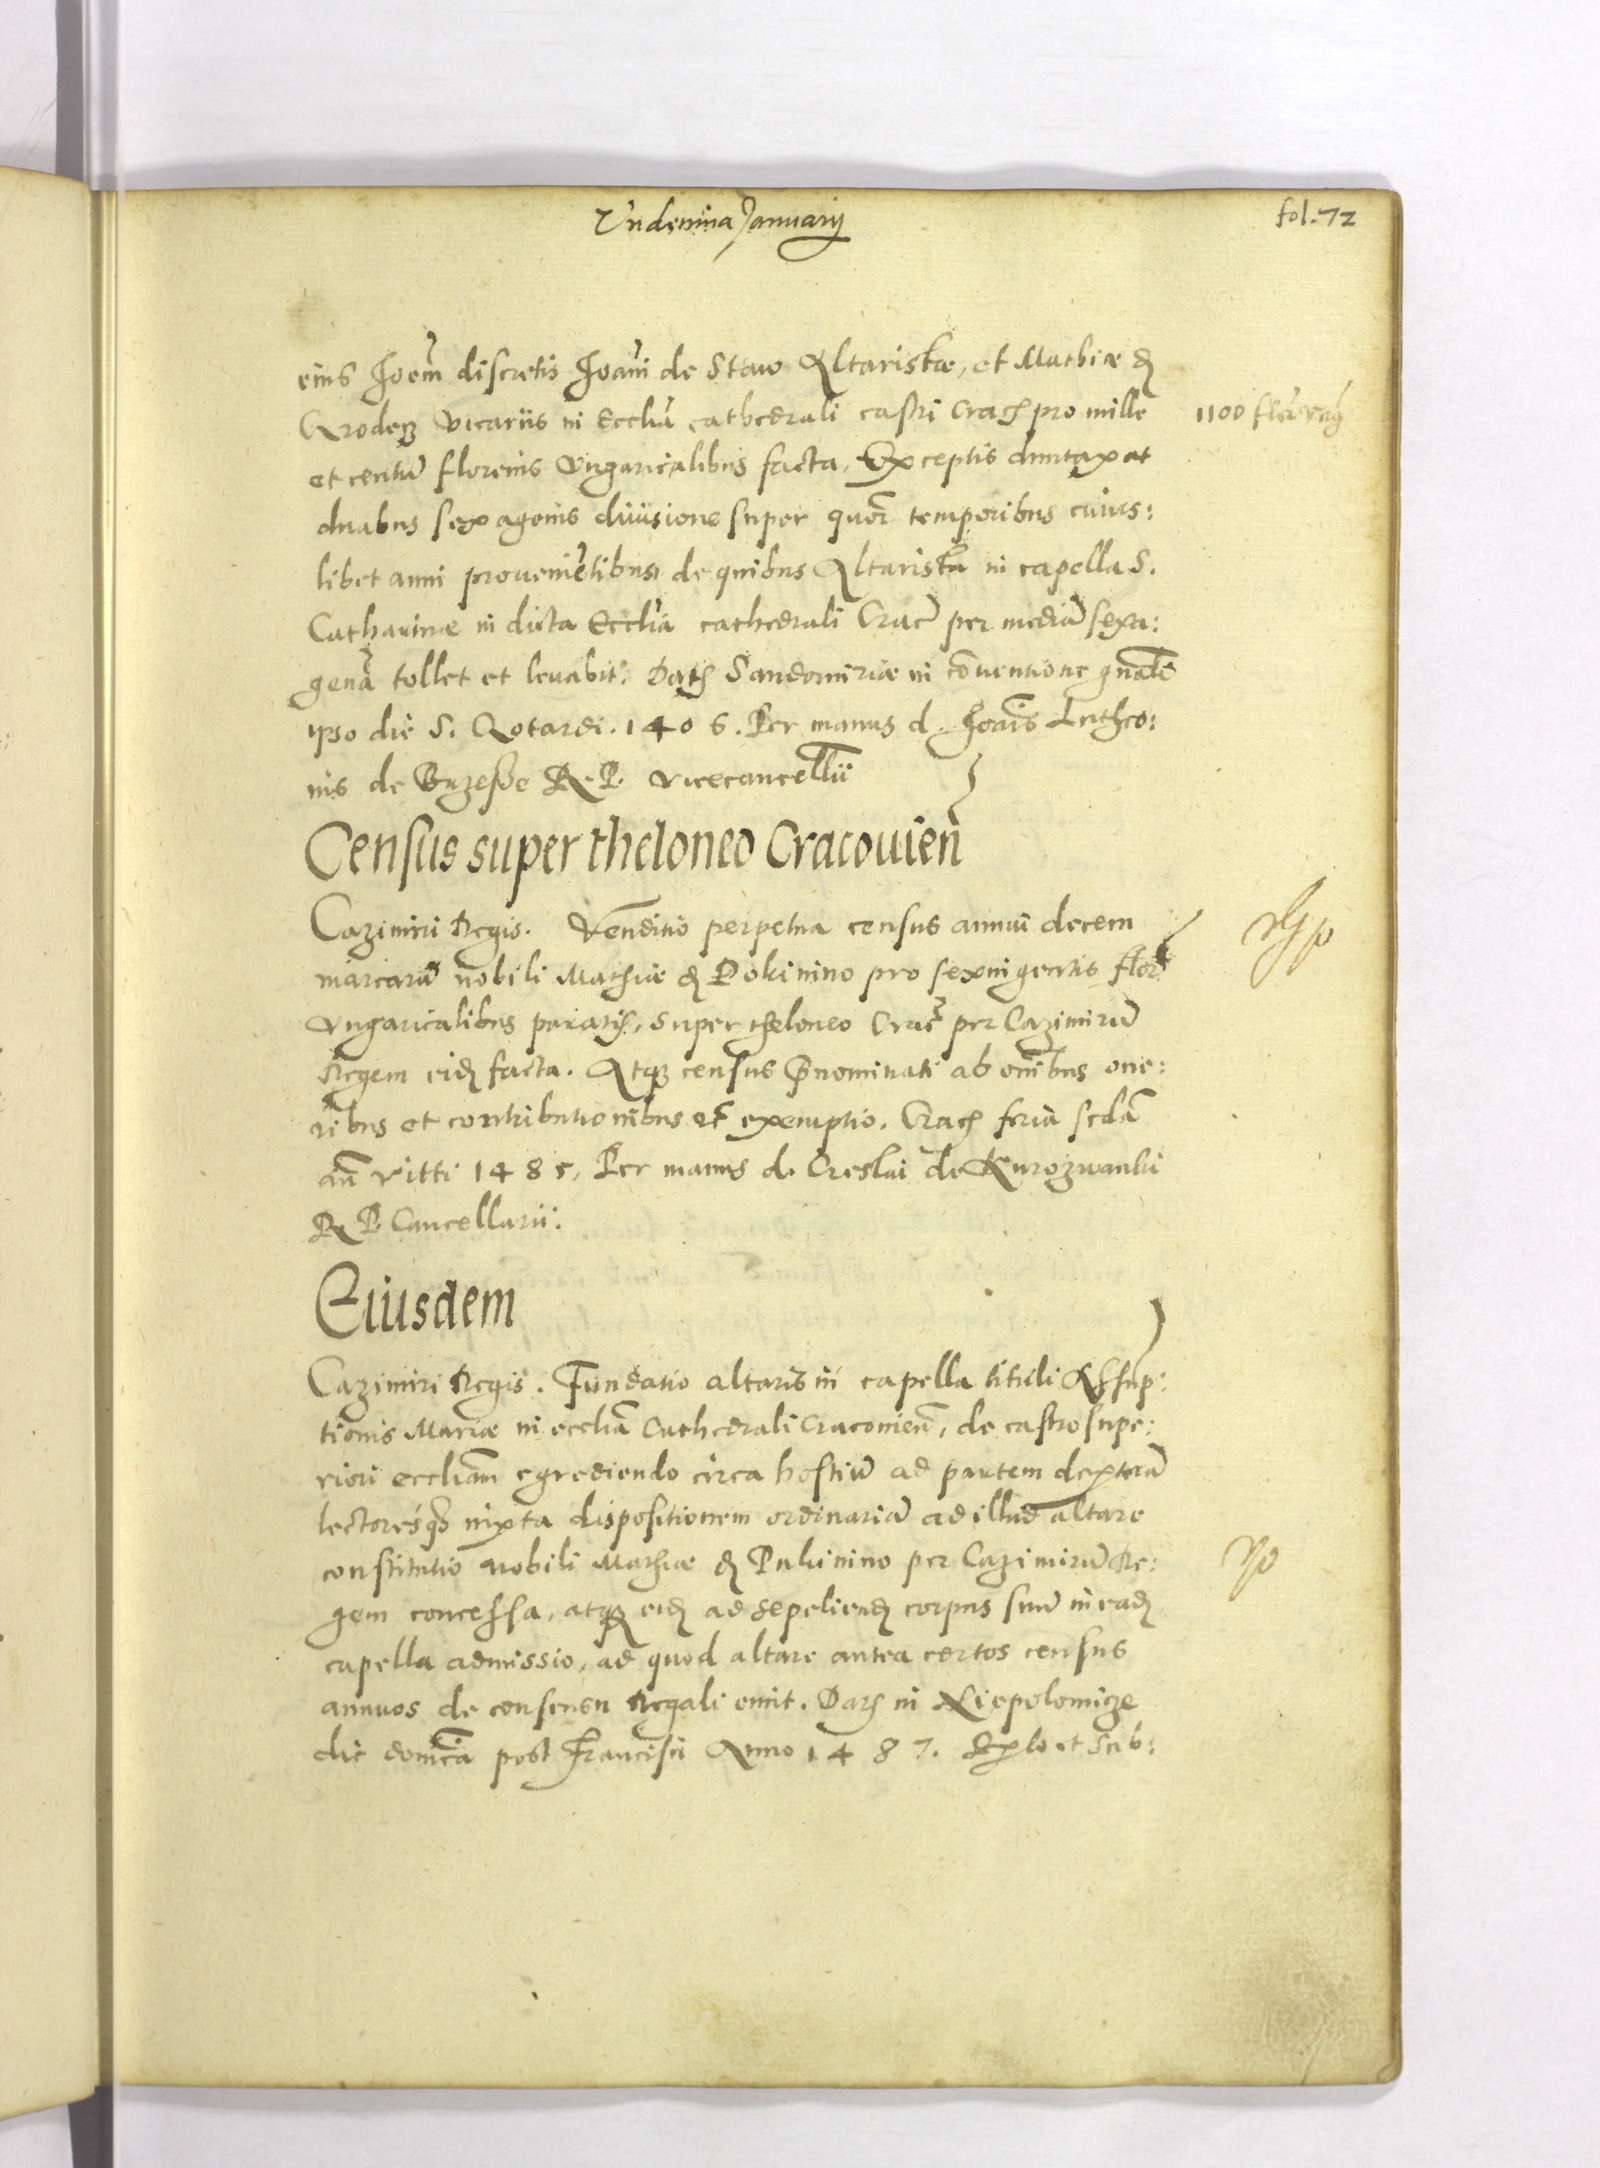 Undecima Januarij
fol. 72
eius Joem̃ discretis Joañi de Staw Altaristæ, et Mathiæ de
Grodecz vicariis in Ecclia cathedrali castri Crac pro mille
1100 flor
et centũ florenis Ungaricalibus facta, Exceptis duntaxat
duabus sexagenis divisione super quor temporibus cuius:
libet anni provenietibus de quibus Altarista in capella S.
Catharinæ in dicta Ecclia cathedrali Crac per mediã sexa:
genã tollet et levabit. Dat Sandomiriæ in cõventione gnali
ipso die S. Gotardi. 1406. Per manus d. Joais
nis de R. P. vicecancellii
Census super theloneo Cracovien̄
Cazimiri Regis. Venditio perpetua census annui decem
marcarũ nobili Mathiæ de Pokinino pro sexingentis flor
Ungaricalibus paratis, super theloneo Crac per Cazimirũ
Regem eid facta. Atqz census p̃nominati ab oĩbus one:
ribus et contributionibus et exemptio. Crac feria scdã
añ Vitti 1485, Per manus d. Creslai de Kurozwanki
R P Cancellarii.
Eiusdem
Cazimiri Regis. Fundatio altaris in capella tituli Assũp:
tionis Mariæ in ecclia Cathedrali Cracovien̄, de castro supe:
riori eccliam egrediendo circa hostiũ ad partem dexterã
lectoresq iuxta dispositionem ordinariã ad illud altare
constitutio nobili Mathiæ de Pukinino per Cazimirũ Re:
gem concessa, atqz eid ad sepeliend corpus suũ in ead
capella admissio, ad quod altare antea certos census
annuos de consensu Regali emit. Dat in Niepolomicze
die domĩca post Francisci Anno 1487. et Sub: